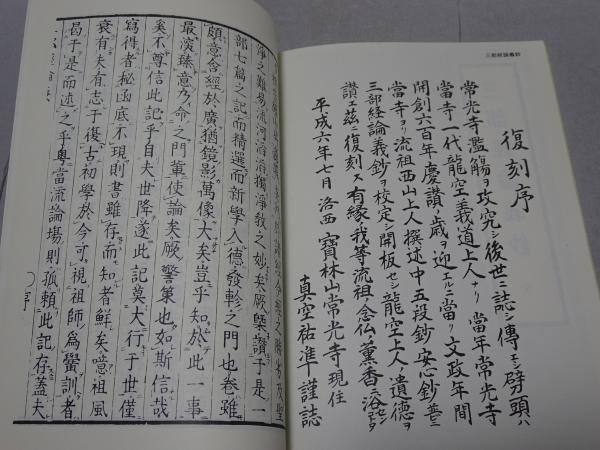 三部経論義鈔
復刻序
常光寺濫觴ヲ攻究シ後世ニ誌シ傳ヘシ劈頭ハ
當寺一代龍空義道上人ナリ當年常光寺
開創六百年慶讃ノ歳ヲ迎エルニ當リ文政年間
當寺ヨリ流祖西山上人撰述中五段鈔安心鈔並ニ
三部経論義鈔ヲ校定シ開板セシ龍空上人ノ遺德ヲ
讃エ茲ニ復刻ス有縁我等流祖ノ念仏ノ薫香ニ浴セ
平成六年七月 洛西 寶林山常光寺現住
真空祐準謹誌
淨之難易流河淯淯獨淨敎之妙矣厥槩讚于是一
部七篇之記而精選而新學入德發軫之門也卷雖
頗意含經於廣猶鏡影萬像大矣豈乎知於此一事
最濱臻意乃命之門董使論矣厥警策也如斯信哉
矣不尊信此記乎自夫世降遂此記莫大行于世僅
寫得者秘函底不現則書雖存而知者鮮矣噫祖風
衰有夫有志于復古初學於今可視祖師爲黌訓者
曷于是而述之乎粤當流論場則孤頼此記存蓋夫
序